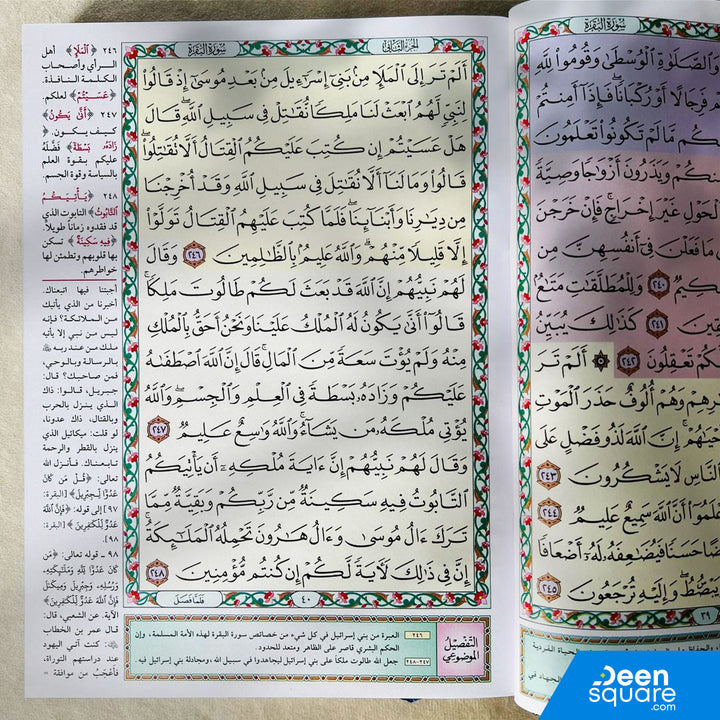 سورة البقرة
الجزء الثاني
سورة البقرة
أَلَمْ تَرَ إِلَى ٱلْمَلَإِ مِنۢ بَنِىٓ إِسْرَٰٓءِيلَ مِنۢ بَعْدِ مُوسَىٰٓ إِذْ قَالُوا۟
لِنَبِىٍّ لَّهُمُ ٱبْعَثْ لَنَا مَلِكًا نُّقَٰتِلْ فِى سَبِيلِ ٱللَّهِ ۖ قَالَ
هَلْ عَسَيْتُمْ إِن كُتِبَ عَلَيْكُمُ ٱلْقِتَالُ أَلَّا تُقَٰتِلُوا۟ ۖ
قَالُوا۟ وَمَا لَنَآ أَلَّا نُقَٰتِلَ فِى سَبِيلِ ٱللَّهِ وَقَدْ أُخْرِجْنَا
مِن دِيَٰرِنَا وَأَبْنَآئِنَا ۖ فَلَمَّا كُتِبَ عَلَيْهِمُ ٱلْقِتَالُ تَوَلَّوْا۟
إِلَّا قَلِيلًا مِّنْهُمْ ۗ وَٱللَّهُ عَلِيمٌۢ بِٱلظَّٰلِمِينَ ٢٤٦ وَقَالَ
لَهُمْ نَبِيُّهُمْ إِنَّ ٱللَّهَ قَدْ بَعَثَ لَكُمْ طَالُوتَ مَلِكًا ۚ
قَالُوٓا۟ أَنَّىٰ يَكُونُ لَهُ ٱلْمُلْكُ عَلَيْنَا وَنَحْنُ أَحَقُّ بِٱلْمُلْكِ
مِنْهُ وَلَمْ يُؤْتَ سَعَةً مِّنَ ٱلْمَالِ ۚ قَالَ إِنَّ ٱللَّهَ ٱصْطَفَىٰهُ
عَلَيْكُمْ وَزَادَهُۥ بَسْطَةً فِى ٱلْعِلْمِ وَٱلْجِسْمِ ۖ وَٱللَّهُ
يُؤْتِى مُلْكَهُۥ مَن يَشَآءُ ۚ وَٱللَّهُ وَٰسِعٌ عَلِيمٌ ٢٤٧
وَقَالَ لَهُمْ نَبِيُّهُمْ إِنَّ ءَايَةَ مُلْكِهِۦٓ أَن يَأْتِيَكُمُ
ٱلتَّابُوتُ فِيهِ سَكِينَةٌ مِّن رَّبِّكُمْ وَبَقِيَّةٌ مِّمَّا
تَرَكَ ءَالُ مُوسَىٰ وَءَالُ هَٰرُونَ تَحْمِلُهُ ٱلْمَلَٰٓئِكَةُ ۚ
إِنَّ فِى ذَٰلِكَ لَءَايَةً لَّكُمْ إِن كُنتُم مُّؤْمِنِينَ ٢٤٨
فَلَمَّا فَصَلَ
٤٠
التفصيل
الموضوعي
٢٤٦ العبرة من بني إسرائيل في كل شيء من خصائص سورة البقرة لهذه الأمة المسلمة، وإن
الحكم البشري قاصر على الظاهر ومتعد للحدود.
٢٤٧-٢٤٨ جعل الله طالوت ملكاً على بني إسرائيل ليجاهدوا في سبيل الله، ومجادلة بني إسرائيل فيه.
٢٤٦ ﴿ٱلْمَلَإِ﴾ أهل
الـرأي وأصحـاب
الكـلـمـة النـافـذة.
﴿عَسَيْتُمْ﴾ لعلكم.
٢٤٧ ﴿أَنَّىٰ يَكُونُ﴾
كـيـف يـكـون.
﴿وَزَادَهُۥ بَسْطَةً﴾ فَضَّلَهُ
عليكم بـقـوة العلم
بالسياسة وقوة الجسم.
٢٤٨ ﴿يَأْتِيَكُمُ
ٱلتَّابُوتُ﴾ التابوت الذي
قد فقدوه زماناً طويلاً.
﴿فِيهِ سَكِينَةٌ﴾ تسكن
بها قلوبهم وتطمئن لها
خواطرهم.
أجبتنا فيها اتبعناك.
أخبرنا من الذي يأتيك
من الملائكة؟ فإنه
ليس من نبي إلا يأتيه
ملك من عند ربه
بالرسالة وبالوحي،
فمن صاحبك؟ قال:
جبريل، قالوا: ذاك
الذي ينزل بالحرب
وبالقتال، ذاك عدونا،
لو قلت: ميكائيل الذي
ينزل بالقطر والرحمة
تابعناك. فأنزل الله
تعالى: ﴿قُلْ مَن كَانَ
عَدُوًّا لِّجِبْرِيلَ﴾ [البقرة:
٩٧] إلى قوله: ﴿فَإِنَّ ٱللَّهَ
عَدُوٌّ لِّلْكَٰفِرِينَ﴾ [البقرة:
٩٨].
٩٨ - قوله تعالى: ﴿مَن
كَانَ عَدُوًّا لِّلَّهِ وَمَلَٰٓئِكَتِهِۦ
وَرُسُلِهِۦ وَجِبْرِيلَ وَمِيكَىٰلَ
فَإِنَّ ٱللَّهَ عَدُوٌّ لِّلْكَٰفِرِينَ﴾
الآية. عن الشعبي، قال:
قال عمر بن الخطاب
: كنت آتي اليهود
عند دراستهم التوراة،
فأعجب من موافقة
وَٱلصَّلَوٰةِ ٱلْوُسْطَىٰ وَقُومُوا۟ لِلَّهِ
فَرِجَالًا أَوْ رُكْبَانًا ۖ فَإِذَآ أَمِنتُمْ
مَّا لَمْ تَكُونُوا۟ تَعْلَمُونَ
وَيَذَرُونَ أَزْوَٰجًا وَصِيَّةً
ٱلْحَوْلِ غَيْرَ إِخْرَاجٍ ۚ فَإِنْ خَرَجْنَ
مَا فَعَلْنَ فِىٓ أَنفُسِهِنَّ مِن
٢٤٠ وَلِلْمُطَلَّقَٰتِ مَتَٰعٌۢ
٢٤١ كَذَٰلِكَ يُبَيِّنُ
تَعْقِلُونَ ٢٤٢ أَلَمْ تَرَ
وَهُمْ أُلُوفٌ حَذَرَ ٱلْمَوْتِ
إِنَّ ٱللَّهَ لَذُو فَضْلٍ عَلَى
ٱلنَّاسِ لَا يَشْكُرُونَ ٢٤٣
أَنَّ ٱللَّهَ سَمِيعٌ عَلِيمٌ ٢٤٤
حَسَنًا فَيُضَٰعِفَهُۥ لَهُۥٓ أَضْعَافًا
وَإِلَيْهِ تُرْجَعُونَ ٢٤٥
٣٩
Deen
square
.com